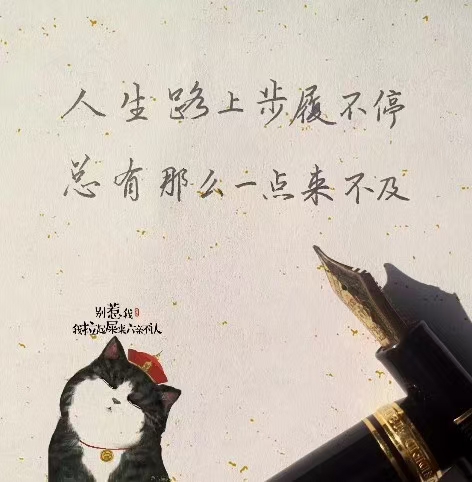 人生路上步履不停
总有那么一点来不及
别惹我
我拉起屎来六亲不认